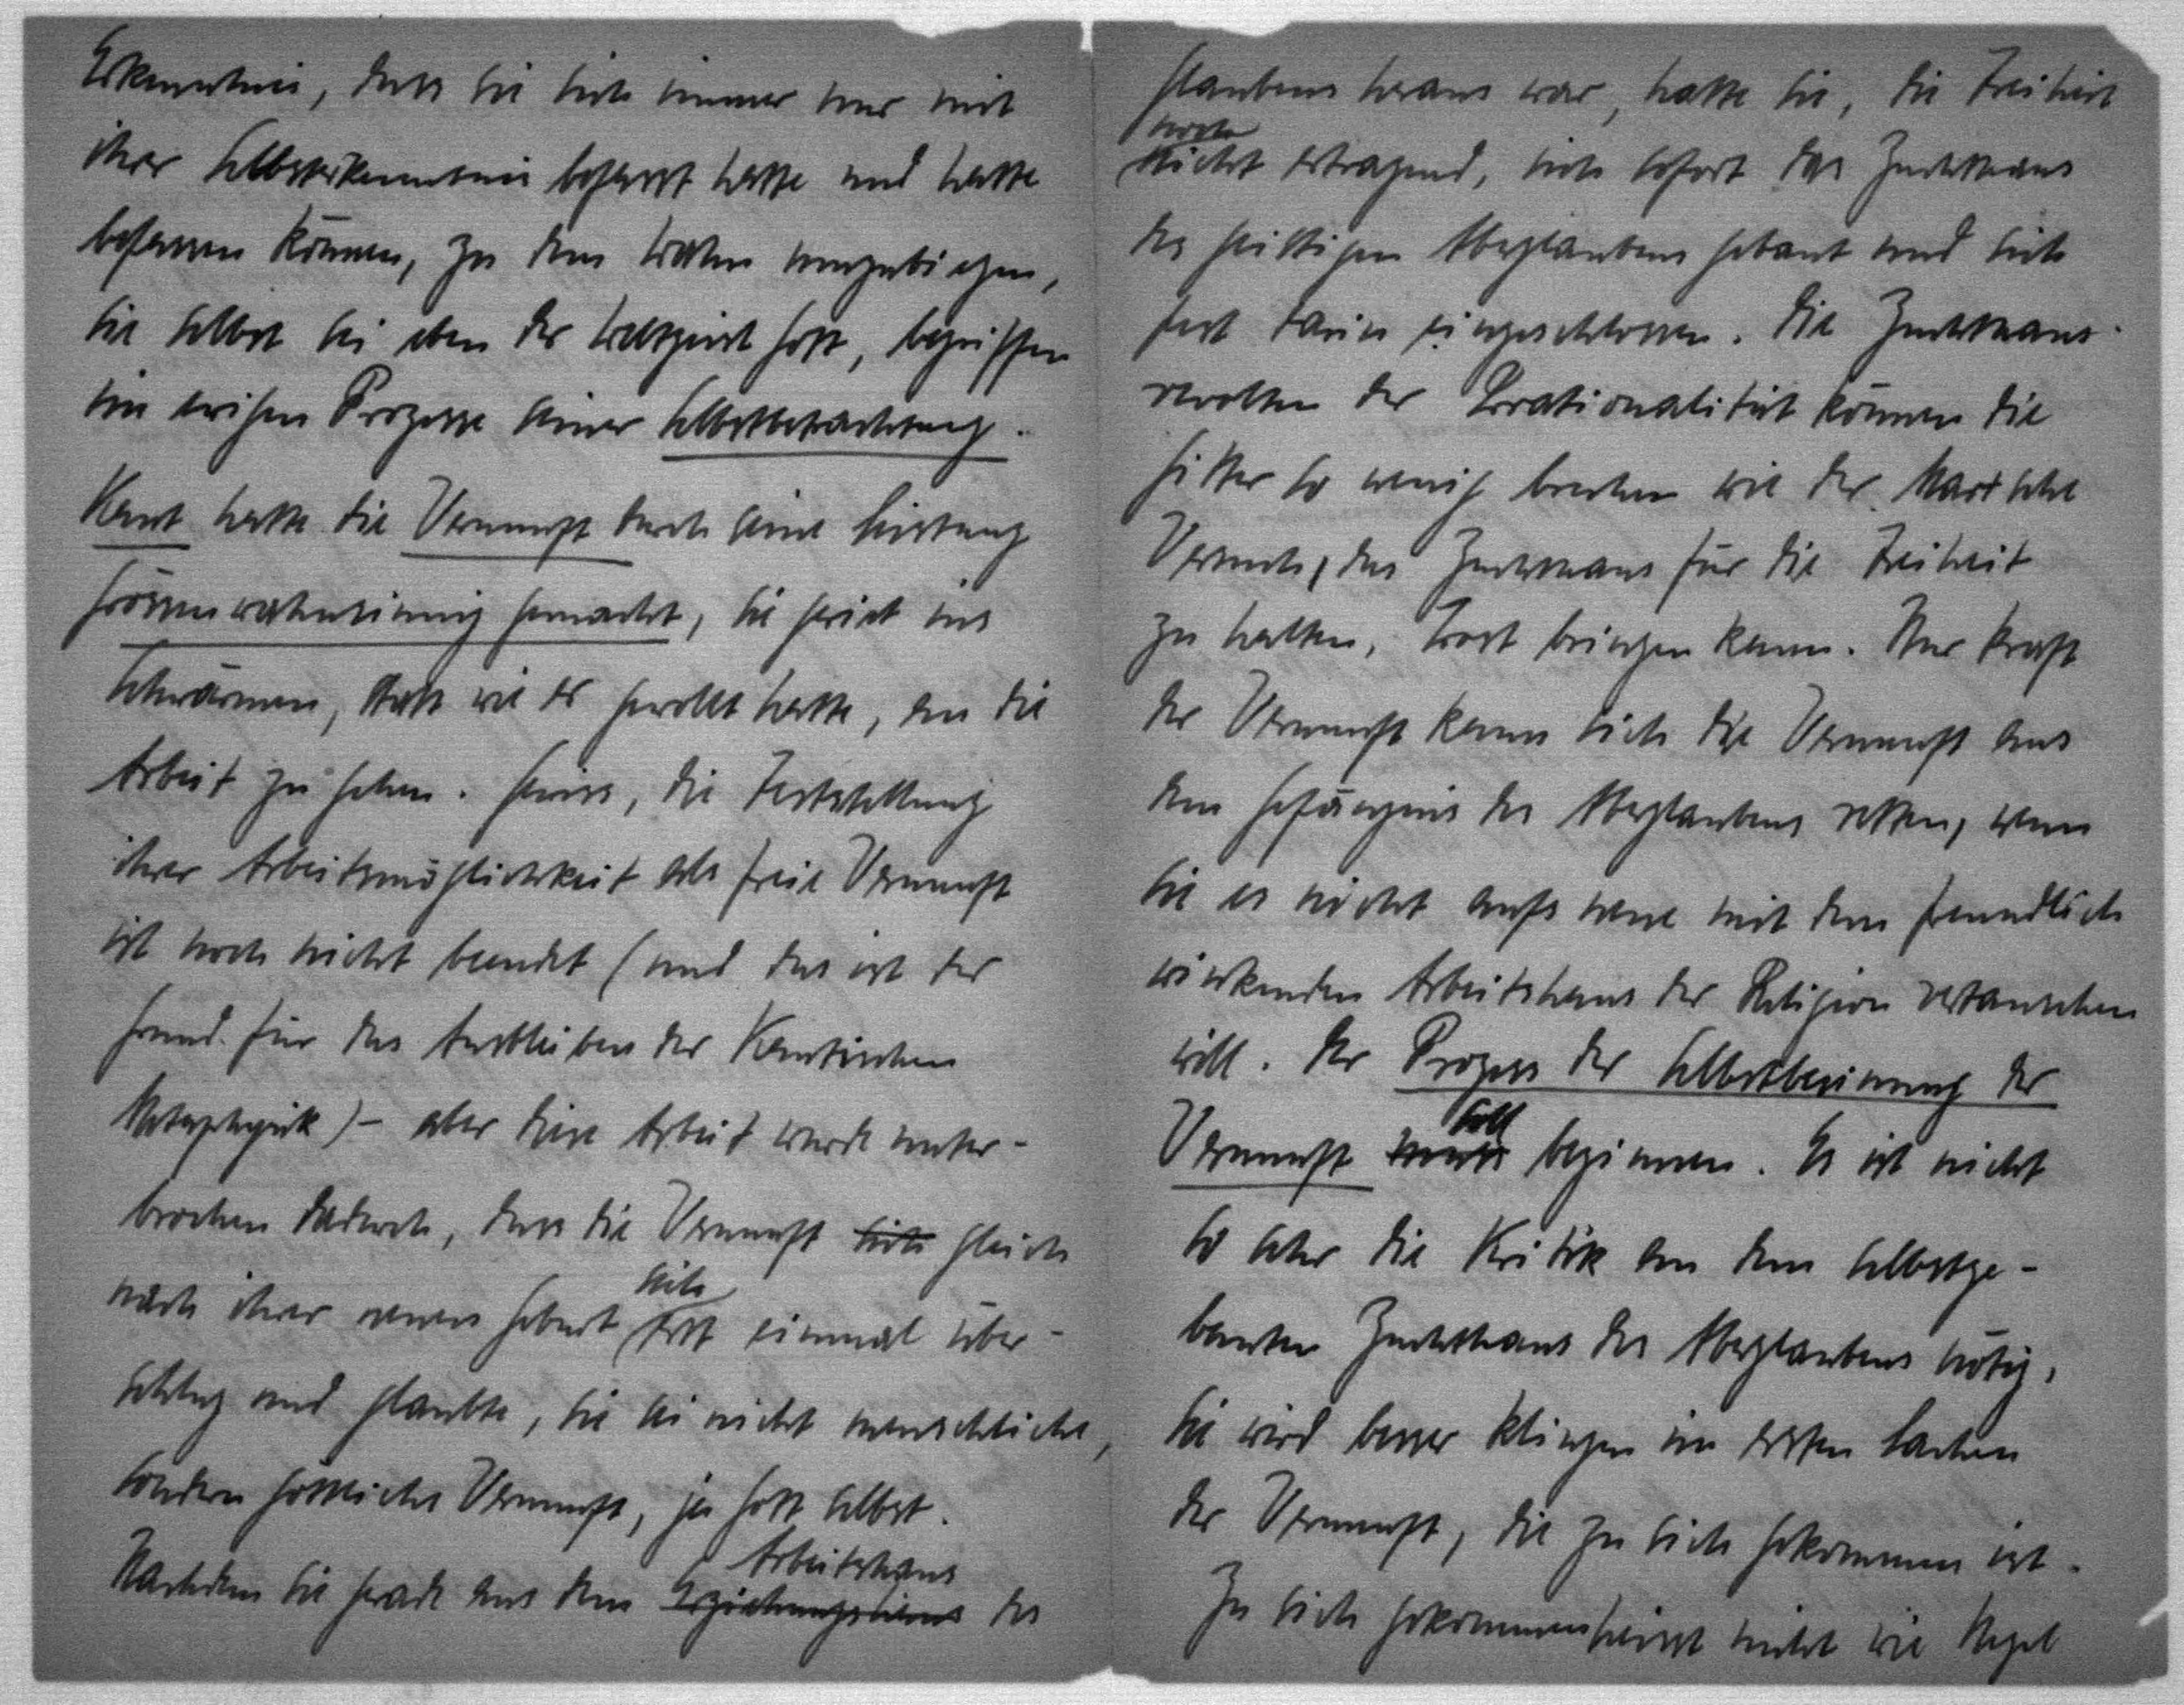 Erkenntnis, dass sie sich immer nur mit
ihrer Selbsterkenntnis befasst hatte und hatte
befassen können, zu dem Wahn umzubiegen,
sie selbst sei eben der Weltgeist Gott, begriffen
im ewigen Prozesse seiner Selbstbetrachtung.
Kant hatte die Vernunft durch seine Leistung
grössenwahnsinnig gemacht, sie geriet ins
Schwärmen, statt wie er gewollt hatte, an die
Arbeit zu gehen. Gewiss, die Feststellung
ihrer Arbeitsmöglichkeit als freie Vernunft
ist noch nicht beendet (und das ist der
Grund für das Ausbleiben der Kantischen
Metaphysik) – aber diese Arbeit wurde unter-
brochen dadurch, dass die Vernunft sich gleich
nach ihrer neuen Geburt sich erst einmal über-
schlug und glaubte, sie sei nicht menschliche,
sondern göttliche Vernunft, ja Gott selbst.
Nachdem sie gerade aus dem Erziehungshaus Arbeitshaus des
Glaubens heraus war, hatte sie, die Freiheit
noch nicht ertragend, sich sofort das Zuchthaus
des geistigen Aberglaubens gebaut und sich
fest darin eingeschlossen. Die Zuchthaus-
revolten der Irrationalität können die
Gitter so wenig brechen wie der Marxsche
Versuch, das Zuchthaus für die Freiheit
zu halten, Trost bringen kann. Nur kraft
der Vernunft kann sich die Vernunft aus
dem Gefängnis des Aberglaubens retten, wenn
sie es nicht aufs neue mit dem freundlich
wirkenden Arbeitshaus der Religion vertauschen
will. Der Prozess der Selbstbesinnung der
Vernunft muss soll beginnen. Es ist nicht
so sehr die Kritik an dem selbstge-
bauten Zuchthaus des Aberglaubens nötig,
sie wird besser klingen im ersten Lachen
der Vernunft, die zu sich gekommen ist.
Zu sich gekommen heisst nicht wie Hegel